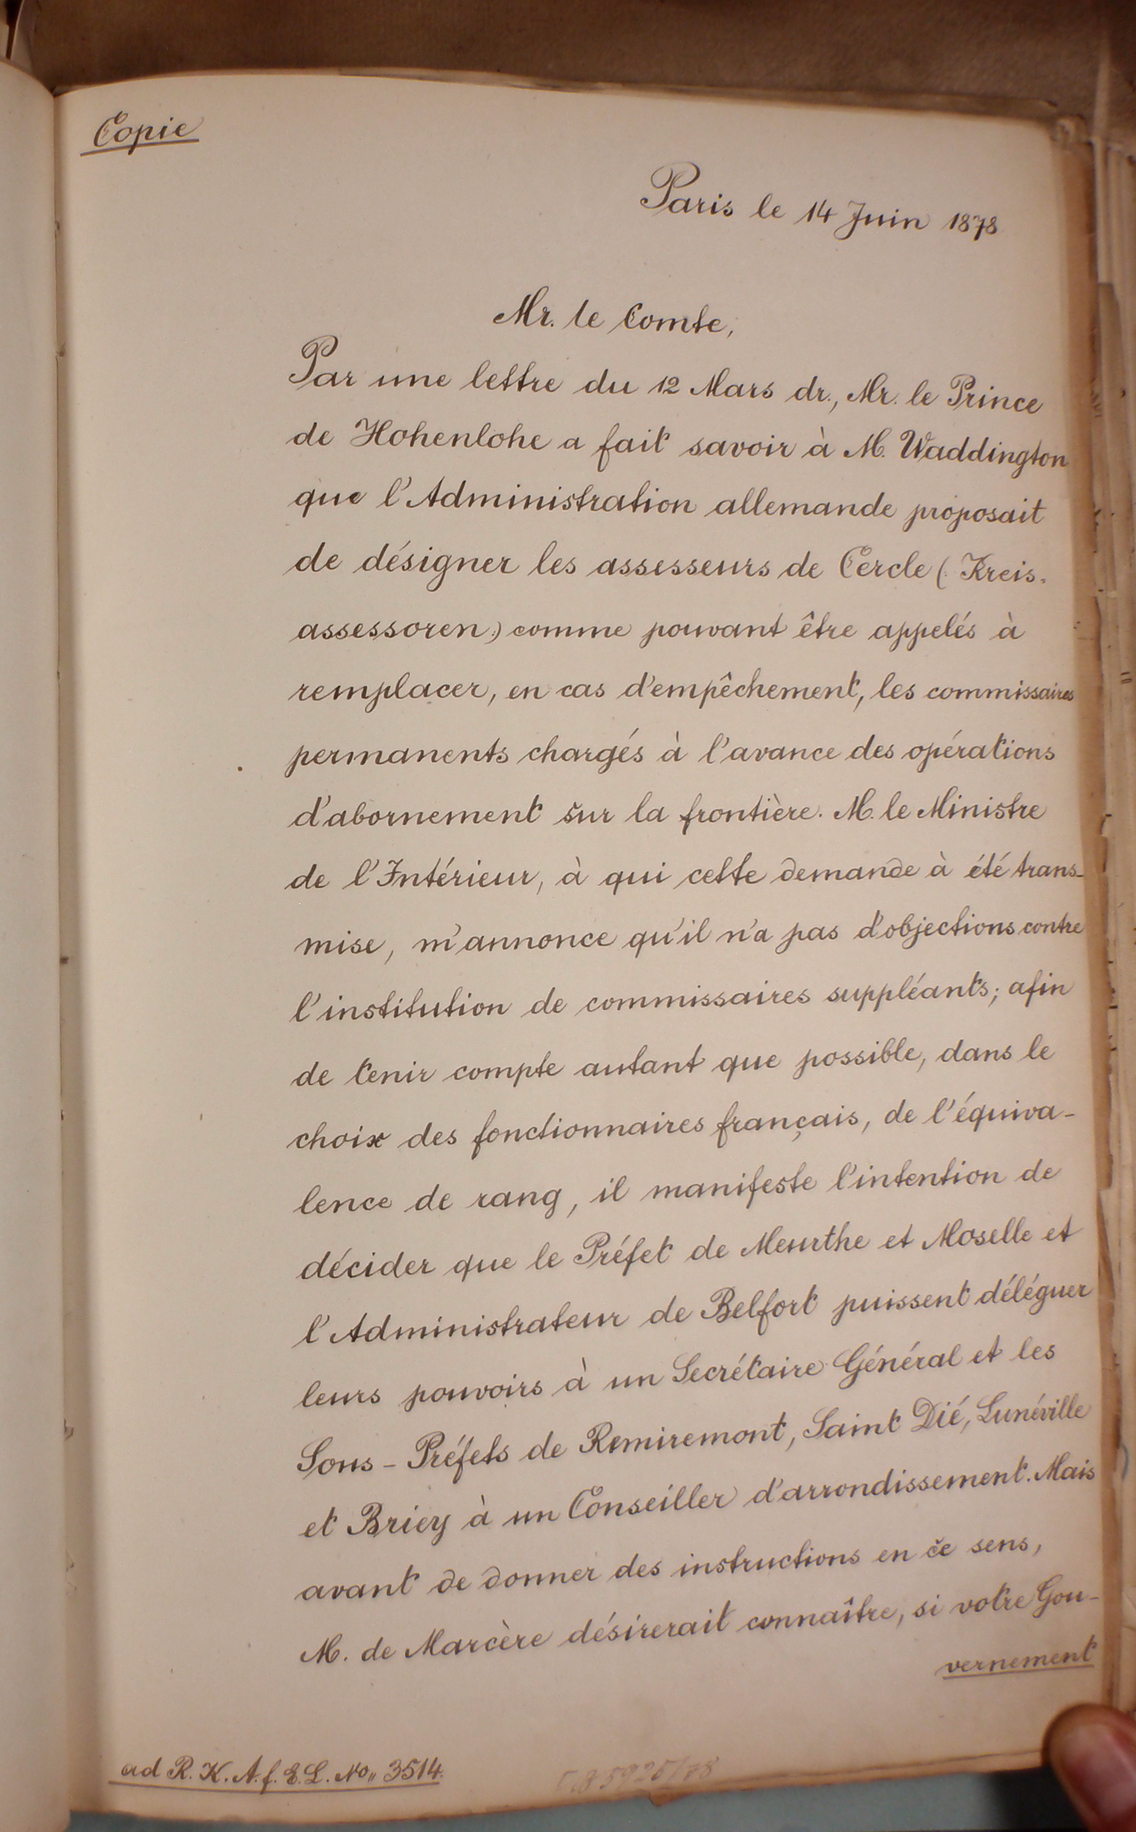 Copie
Paris le 14 Juin 1878
Mr. le Comte,
Par une lettre du 12 Mars dr., Mr. le Prince
de Hohenlohe a fait savoir à M. Waddington
que l'Administration allemande proposait
de désigner les assesseurs de Cercle (Kreis-
assessoren) comme pouvant être appelés à
remplacer, en cas d'empêchement, les commissaires
permanents chargés à l'avance des opérations
d'abornement sur la frontière. M. le Ministre
de l'Intérieur, à qui cette demande à été trans-
mise, m'annonce qu'il n'a pas d'objections contre
l'institution de commissaires suppléants; afin
de tenir compte autant que possible, dans le
choix des fonctionnaires français, de l'équiva-
lence de rang, il manifeste l'intention de
décider que le Préfet de Meurthe et Moselle et
l'Administrateur de Belfort puissent déléguer
leurs pouvoirs à un Secrétaire Général et les
Sous-Préfets de Remiremont, Saint Dié, Lunéville
et Briey à un Conseiller d'arrondissement. Mais
avant de donner des instructions en ce sens,
M. de Marcère désirerait connaître, si votre Gou-
vernement
ad R. K. A. f. E. L. No. 3514.